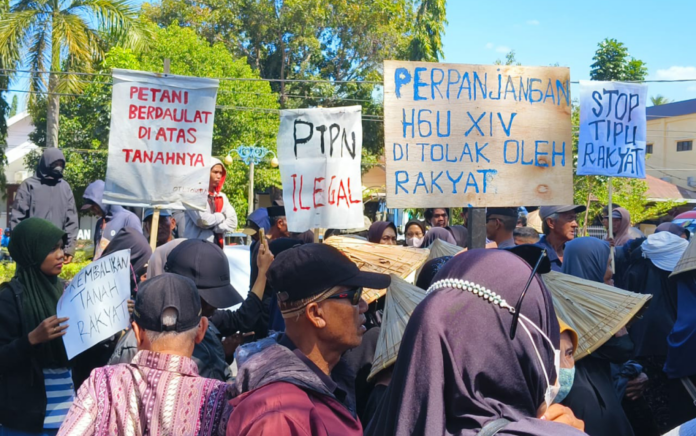 PETANI
BERDAULAT
DI ATAS
TANAHNYA
PTPN
ILEGAL
PERPANJANGAN
HGU XIV
DI TOLAK OLEH
RAKYAT
STOP
TIPU
RAKYAT
KEMBALIKAN
TANAH
RAKYAT